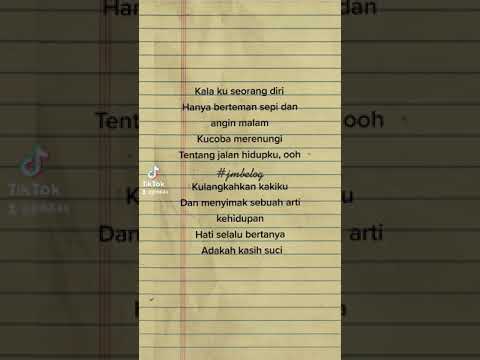 Kala ku seorang diri
Hanya berteman sepi dan
angin malam
Kucoba merenungi
Tentang jalan hidupku, ooh
#jmbelog
Kulangkahkan kakiku
Dan menyimak sebuah arti
kehidupan
Hati selalu bertanya
Adakah kasih suci
TikTok
TikTok